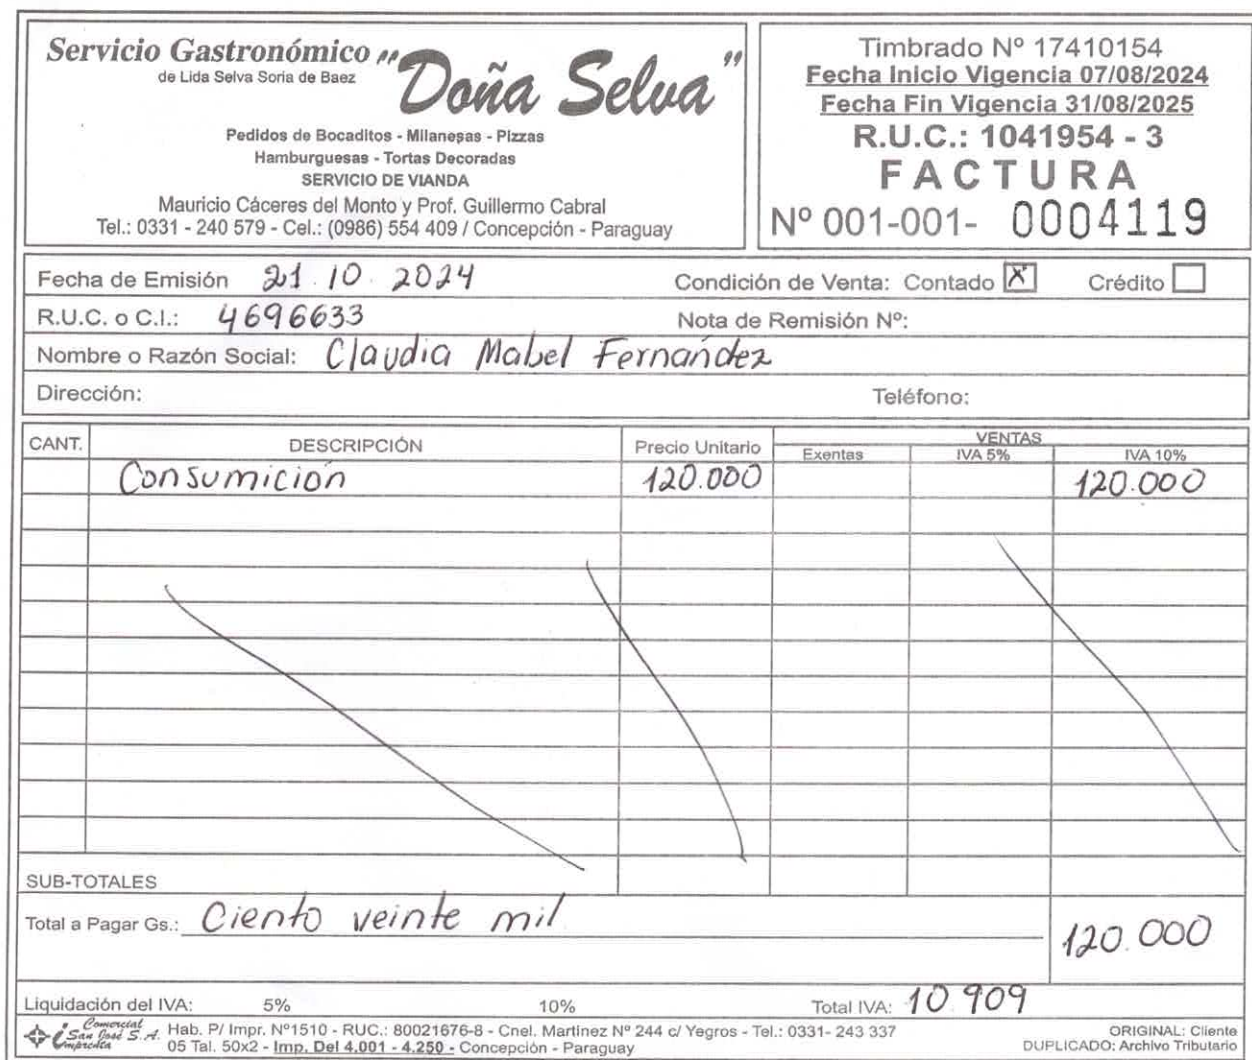 Servicio Gastronómico "Doña Selva"
de Lida Selva Soria de Baez
Pedidos de Bocaditos - Milanesas - Pizzas
Hamburguesas - Tortas Decoradas
SERVICIO DE VIANDA
Mauricio Cáceres del Monto y Prof. Guillermo Cabral
Tel.: 0331 - 240 579 - Cel.: (0986) 554 409 / Concepción - Paraguay
Timbrado Nº 17410154
Fecha Inicio Vigencia 07/08/2024
Fecha Fin Vigencia 31/08/2025
R.U.C.: 1041954 - 3
FACTURA
Nº 001-001- 0004119
Fecha de Emisión 21.10.2024 Condición de Venta: Contado X Crédito
R.U.C. o C.I.: 4696633 Nota de Remisión Nº:
Nombre o Razón Social: Claudia Mabel Fernández
Dirección: Teléfono:
CANT. DESCRIPCIÓN Precio Unitario VENTAS
Exentas IVA 5% IVA 10%
Consumición 120.000 120.000
SUB-TOTALES
Total a Pagar Gs.: Ciento veinte mil 120.000
Liquidación del IVA: 5% 10% Total IVA: 10.909
Comercial Imprenta San José S.A. Hab. P/ Impr. Nº1510 - RUC.: 80021676-8 - Cnel. Martinez Nº 244 c/ Yegros - Tel.: 0331- 243 337
05 Tal. 50x2 - Imp. Del 4.001 - 4.250 - Concepción - Paraguay
ORIGINAL: Cliente
DUPLICADO: Archivo Tributario